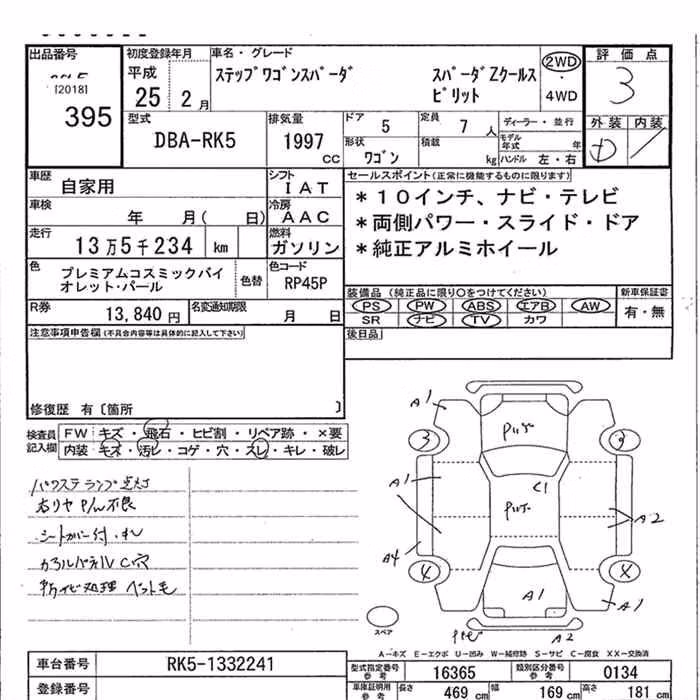 出品番号
[2018]
395
初度登録年月
平成
25 2 月
車名・グレード
ステップワゴンスパーダ スパーダZクールス
ピリット
2WD
・
4WD
評価点
3
外装 内装
D
型式
DBA-RK5
排気量
1997
CC
ドア
5
定員
7 人
形状
ワゴン
積載
kg
ディーラー・並行
モデル
年式 年
ハンドル 左・右
車歴
自家用
シフト
IAT
車検
年 月( 日)
冷房
AAC
走行
13万5千234 km
燃料
ガソリン
色
プレミアムコスミックバイ
オレット・パール
色替
色コード
RP45P
R券
13,840 円
名変通知期限
月 日
セールスポイント(正常に機能するものに限ります)
*10インチ、ナビ・テレビ
*両側パワー・スライド・ドア
*純正アルミホイール
装備品 (純正品に限り○をつけてください)
PS PW ABS エアB AW
SR ナビ TV カワ
新車保証書
有・無
後日品
注意事項申告欄(不具合内容等は具体的に記入して下さい)
修復歴 有〔箇所 〕
検査員
記入欄
FW キズ・飛石・ヒビ割・リペア跡・×要
内装 キズ・汚レ・コゲ・穴・スレ・キレ・破レ
シートカバー付
A1
3
3
A1
C1
A2
A4
4
4
A1
A1
A2
スペア
A-キズ E-エクボ U-凹み W-補修跡 S-サビ C-腐食 XX-交換済
車台番号
RK5-1332241
登録番号
型式指定番号
参考
16365
類別区分番号
参考
0134
車庫証明用
参考
長さ
469 cm
幅
169 cm
高さ
181 cm